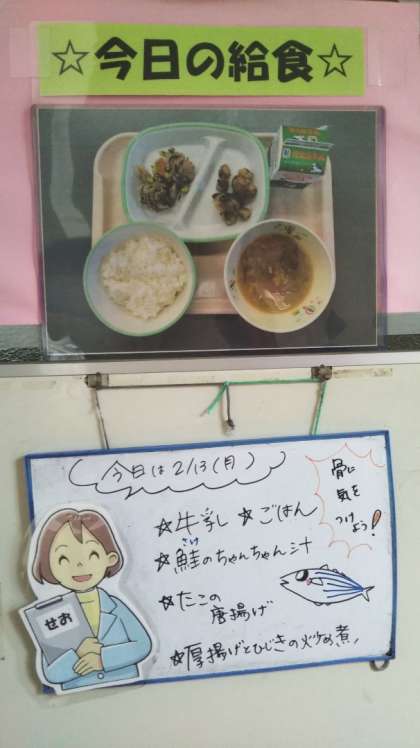 ☆今日の給食☆
今日は2/13(月)
骨に
気を
つけ
よう!
☆牛乳 ☆ごはん
さけ
☆鮭のちゃんちゃん汁
☆たこの
唐揚げ
☆厚揚げとひじきの炒め煮
せお